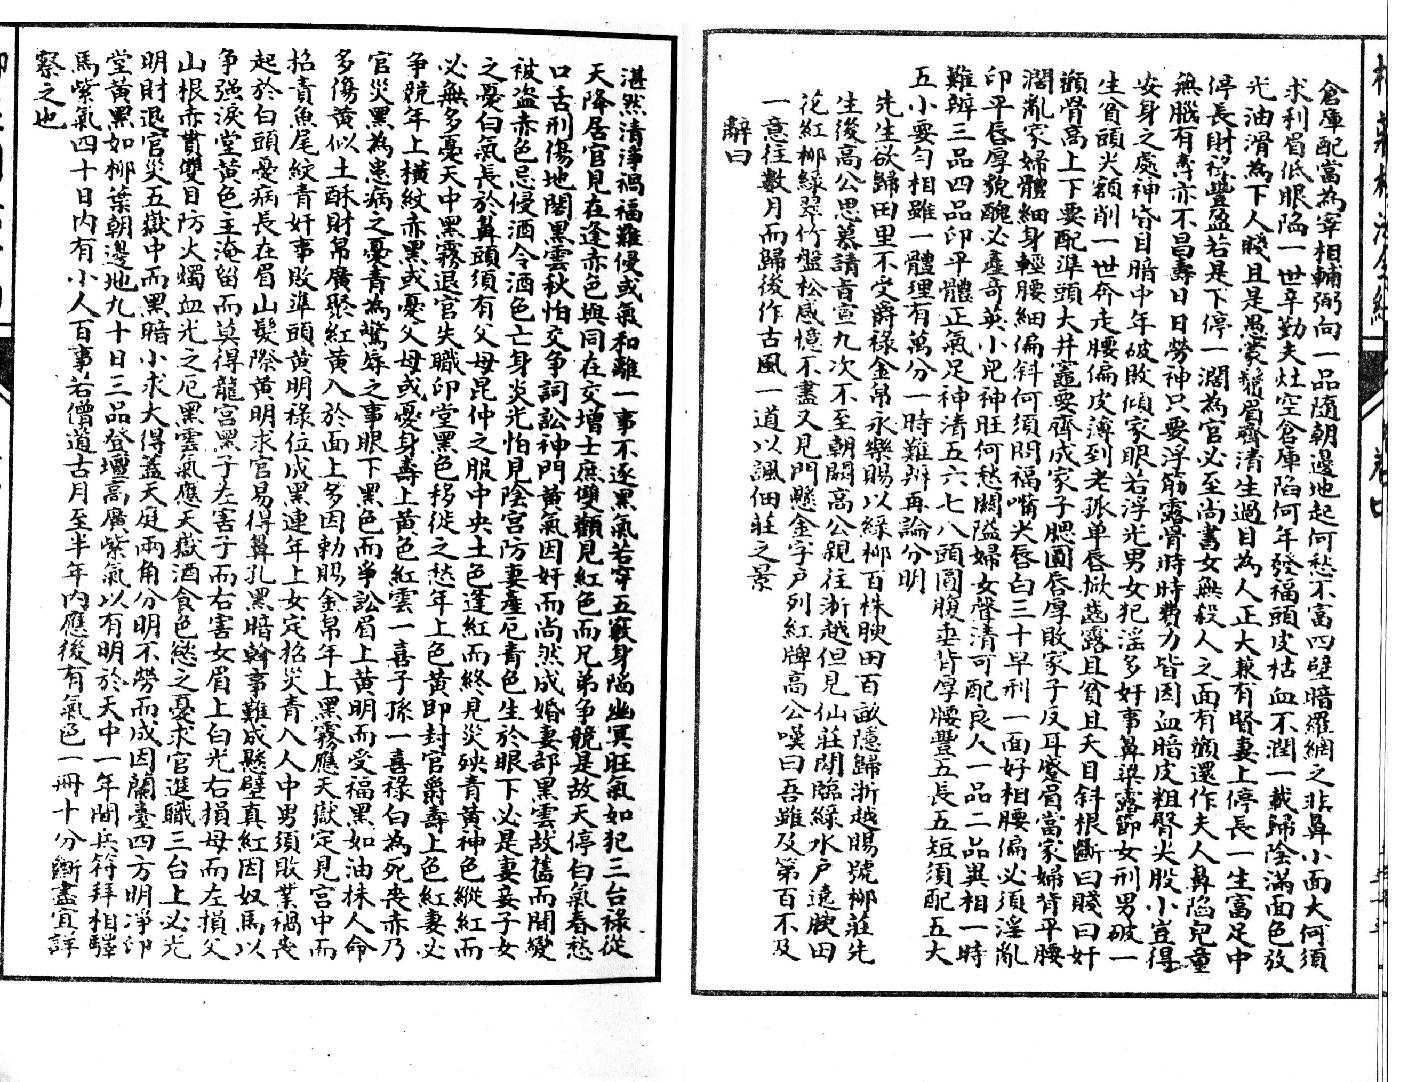 倉庫配當為宰相輔弼向一品隨朝邊地起何愁不富四壁暗羅網之非鼻小面大何須
求利眉低眼陷一世辛勤夫灶空倉庫陷何年發福頭皮枯血不潤一載歸陰滿面色放
光油滑為下人賤且是愚蒙鬚眉齊清生過目為人正大兼有賢妻上停長一生富足中
停長財祿豐盈若是下停一濶為官必至尚書女無殺人之面有頦還作夫人鼻陷兒童
無腦有壽亦不昌壽日日勞神只要浮筋露骨時時費力皆因血暗皮粗臀尖股小豈得
安身之處神昏目暗中年破敗傾家眼若浮光男女犯淫多奸事鼻梁露節女刑男破一
生貧頭尖額削一世奔走腰偏皮薄到老孤單唇掀齒露且貧且夭目斜根斷曰賤曰奸
顴骨高上下要配準頭大井竈要齊成家子腮圓唇厚敗家子反耳蹙眉當家婦背平腰
濶亂家婦體細身輕腰細偏斜何須問福嘴尖唇白三十早刑一面好相腰偏必須淫亂
印平唇厚貌醜必產奇英小兒神旺何愁關隘婦女聲清可配良人一品二品異相一時
難辨三品四品印平體正氣足神清五六七八頭圓腹垂背厚腰豐五長五短須配五大
五小要勻相雖一體理有萬分一時難辨再論分明
先生欲歸田里不受爵祿金帛永樂賜以綠柳百株腴田百畝隱歸浙越賜號柳莊先
生後高公思慕請旨宣九次不至朝闕高公親往浙越但見仙莊門臨綠水戶遶腴田
花紅柳綠翠竹盤松感憶不盡又見門懸金字戶列紅牌高公嘆曰吾雖及第百不及
一意往數月而歸後作古風一道以諷佃莊之景
辭曰
湛然清淨禍福難侵或氣和離一事不逐黑氣若穿五竅身陷幽冥旺氣如犯三台祿從
天降居官見在逢赤色與同在交增士庶雙顴見紅色而兄弟爭競是故天停白氣春愁
口舌刑傷地閣黑雲秋怕交爭詞訟神門黃氣因奸而尚然成婚妻部黑雲故舊而間變
被盜赤色忌侵酒令酒色亡身炎光怕見陰宮防妻產厄青色生於眼下必是妻妾子女
之憂白氣長於鼻頭須有父母昆仲之服中央土色逢紅而終見災殃青黃神色縱紅而
必無多憂天中黑霧退官失職印堂黑色移徙之愁年上色黃即封官爵壽上色紅妻必
爭競年上橫紋赤黑或憂父母或憂身壽上黃色紅雲一喜子孫一喜祿白為死喪赤乃
官災黑為患病之憂青為驚辱之事眼下黑色而爭訟眉上黃明而受福黑如油抹人命
多傷黃似土酥財帛廣聚紅黃入於面上多因勅賜金帛年上黑霧應天獄定見宮中而
招責魚尾紋青奸事敗準頭黃明祿位成黑連年上女定招災青入人中男須敗業禍喪
起於白頭憂病長在眉山髮際黃明求官易得鼻孔黑暗幹事難成懸壁真紅因奴馬以
爭強淚堂黃色主淹留而莫得龍宮黑子左害子而右害女眉上白光右損母而左損父
山根赤貫雙目防火燭血光之厄黑雲氣應天獄酒食色慾之憂求官進職三台上必光
明財退官災五嶽中而黑暗小求大得蓋天庭兩角分明不勞而成因蘭臺四方明淨印
堂黃黑如柳葉朝邊地九十日三品登壇高廣紫氣以有明於天中一年間兵符拜相驛
馬紫氣四十日內有小人百事若僧道古月至半年內應後有氣色一冊十分斷盡宜詳
察之也